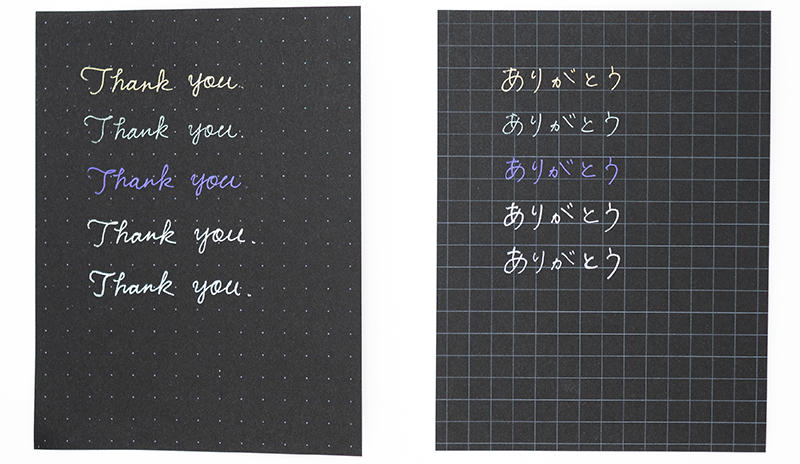 Thank you.
Thank you.
Thank you.
Thank you.
Thank you.
ありがとう
ありがとう
ありがとう
ありがとう
ありがとう